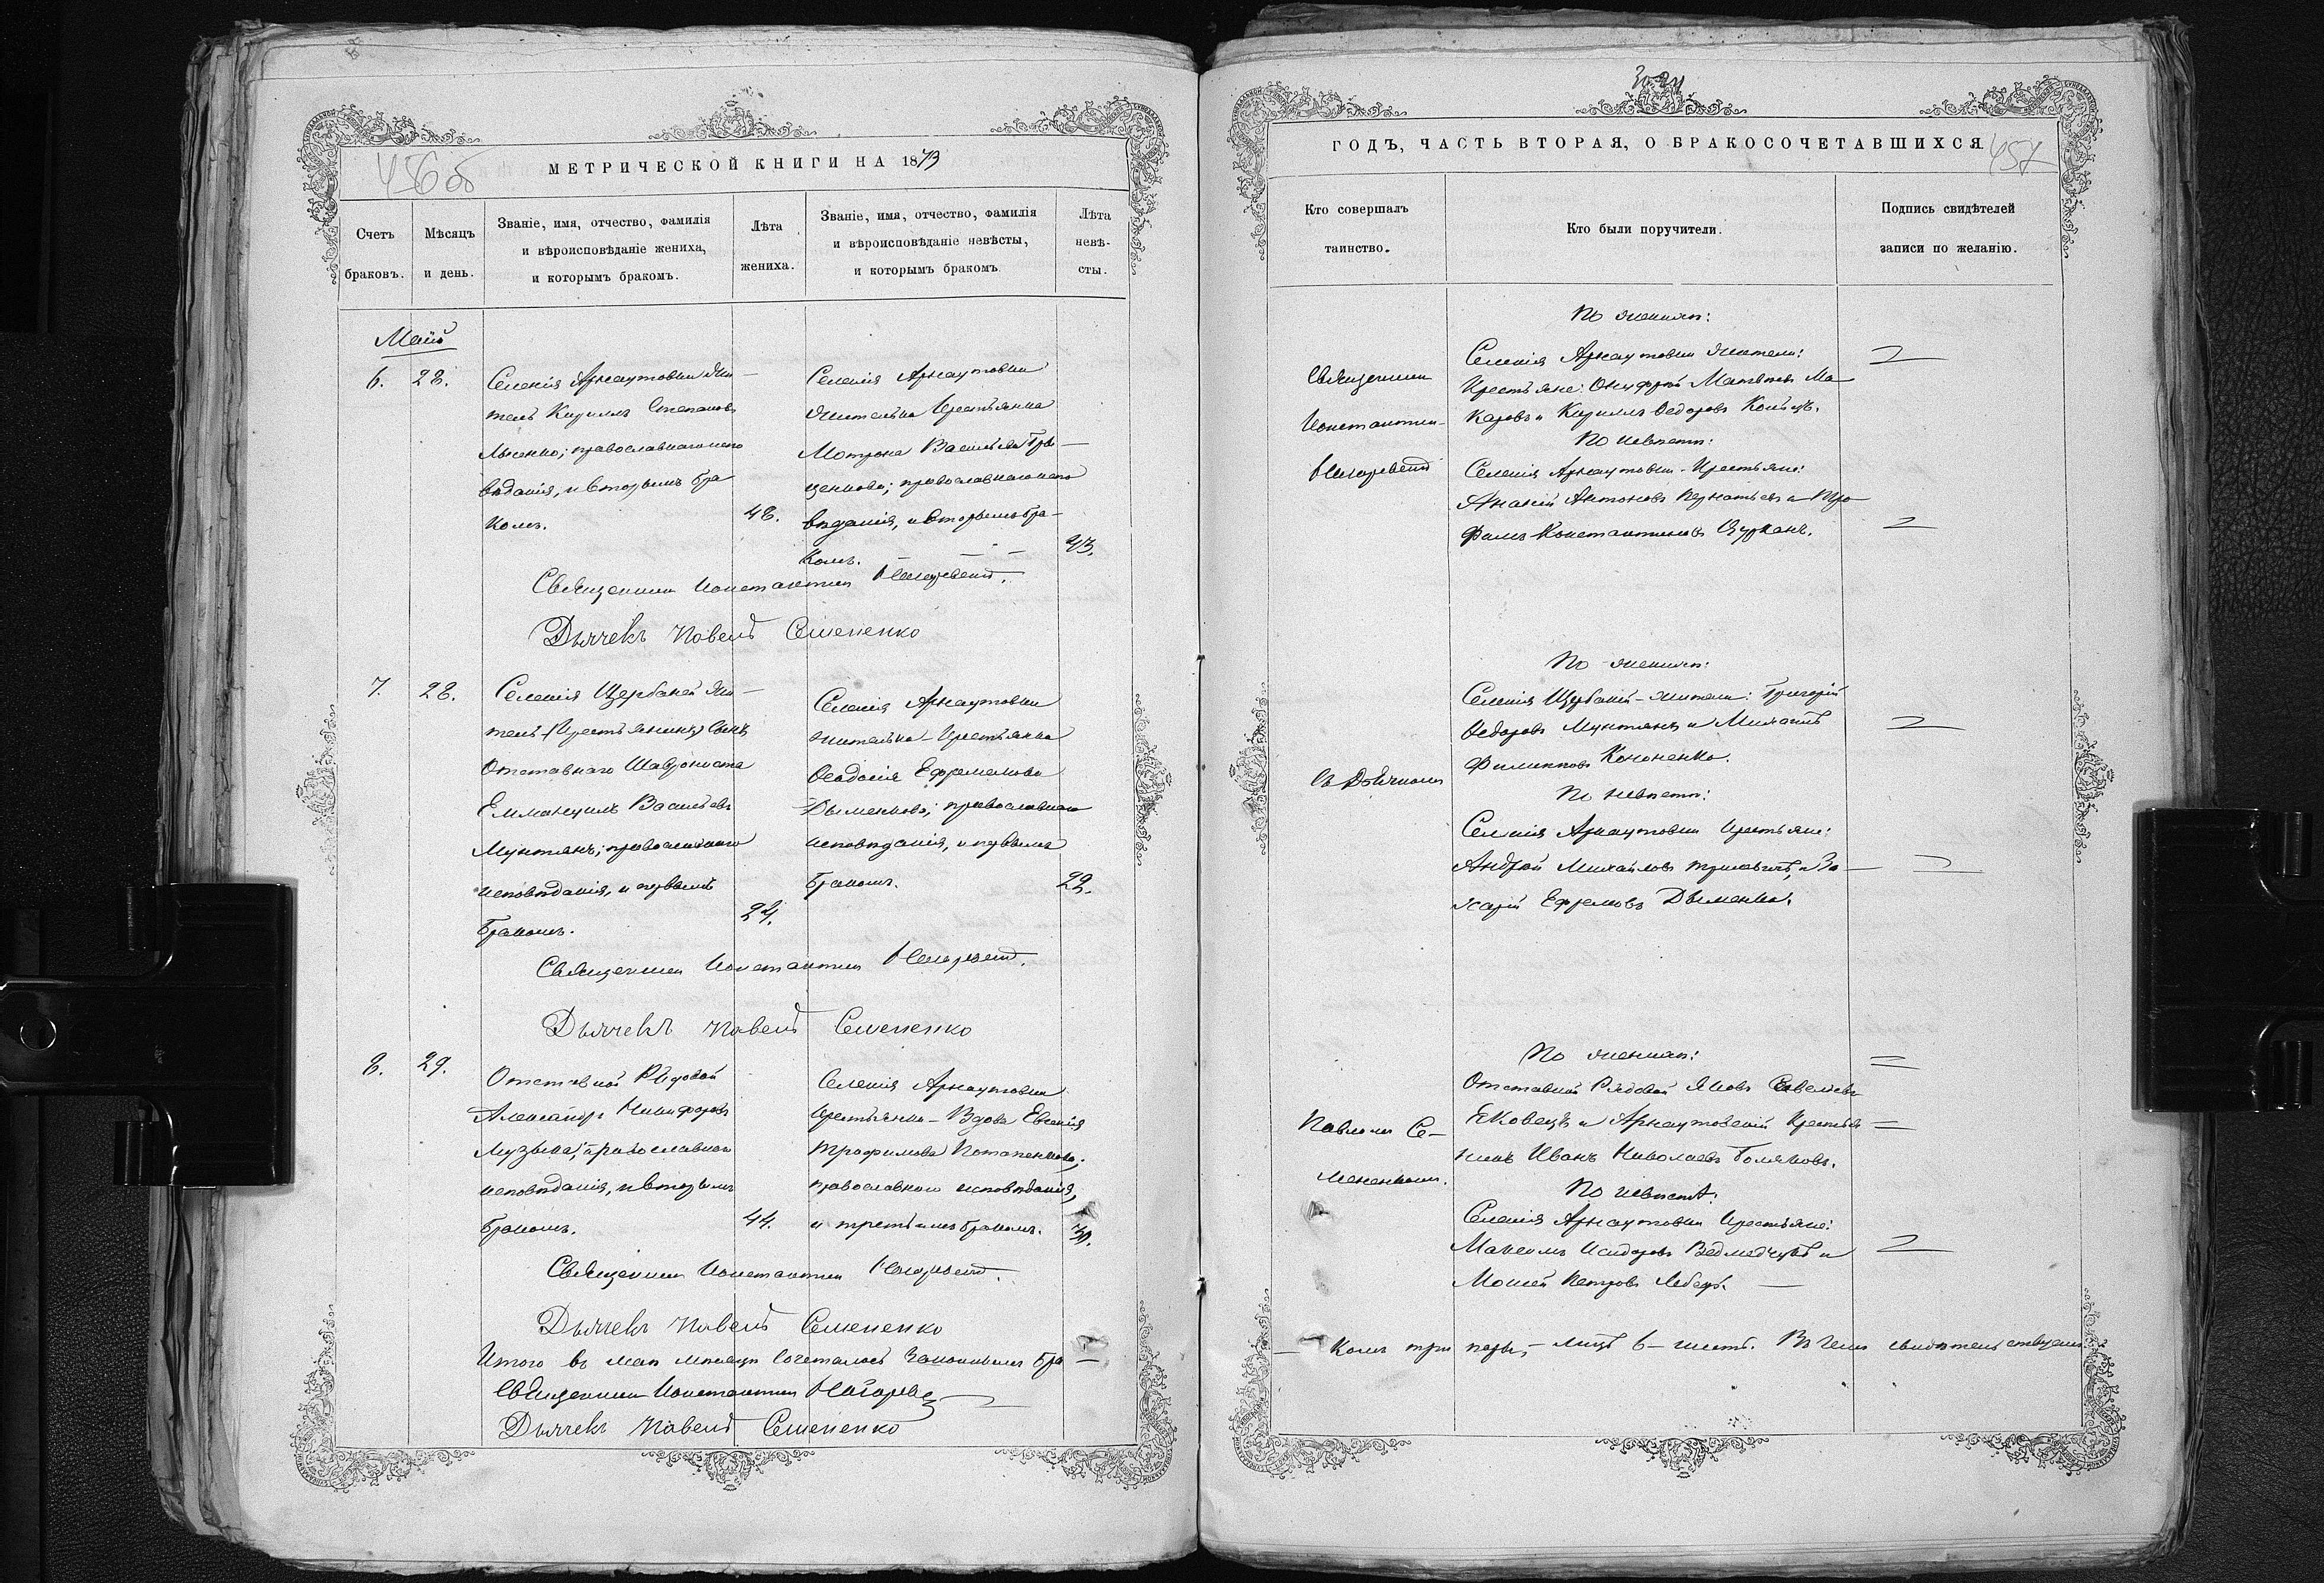 456 об
МЕТРИЧЕСКОЙ КНИГИ НА 1873
Счетъ браковъ.
Мѣсяцъ и день.
Званіе, имя, отчество, фамилія
и вѣроисповѣданіе жениха,
и которымъ бракомъ.
Лѣта жениха.
Званіе, имя, отчество, фамилія
и вѣроисповѣданіе невѣсты,
и которымъ бракомъ.
Лѣта невѣ-
сты.
Май
6. 28.
Селенія Арнаутовки жи-
тель Кирилъ Степановъ
Лысенко; православнаго испо
вѣданія, и вторымъ бра
комъ.
48.
Селенія Арнаутовки
жителька Крестьянка
Мотрона Васильева Гри-
ценкова; православнаго испо
вѣданія, и вторымъ бра-
комъ.
43.
Священникъ Константинъ
Дьячекъ Павелъ Семененко
7. 28.
Селенія Щербаней жи-
тель (Крестьянинъ) сынъ
Отставнаго
Еммануилъ Васильевъ
Мунтянъ; православнаго
исповѣданія, и первымъ
бракомъ.
24.
Селенія Арнаутовки
жителька - Крестьянка
Ѳеодосія Ефремова
Дыменкова; православнаго
исповѣданія, и первымъ
бракомъ.
22.
Священникъ Константинъ
Дьячекъ Павелъ Семененко
8. 29.
Отставной Рядовой
Александръ Никифоровъ
Музыка; православнаго
исповѣданія, и вторымъ
бракомъ.
44.
Селенія Арнаутовки
Крестьянка - Вдова Евгенія
Трофимова Потапенкова;
православнаго исповѣданія,
и третьимъ бракомъ.
30.
Священникъ Константинъ
Дьячекъ Павелъ Семененко
Итого въ маѣ мѣсяцѣ сочеталось законнымъ бра-
Священникъ Константинъ
Дьячекъ Павелъ Семененко
ГОДЪ, ЧАСТЬ ВТОРАЯ, О БРАКОСОЧЕТАВШИХСЯ.
457
Кто совершалъ
таинство.
Кто были поручители.
Подпись свидѣтелей
записи по желанію.
Священникъ
Константинъ
съ Дьячкомъ
Павломъ Се-
мененкомъ.
По женихѣ:
Селенія Арнаутовки жители:
Крестьяне: Онуфрій Матвѣевъ Ма-
каровъ и Кирилъ Ѳедоровъ
По невѣстѣ:
Селенія Арнаутовки - Крестьяне:
Ананій Антоновъ и Тро
фимъ Константиновъ Цурканъ.
По женихѣ:
Селенія Щербаней - жители: Григорій
Ѳедоровъ Мунтянъ и Михаилъ
Филипповъ Кононенко.
По невѣстѣ:
Селенія Арнаутовки Крестьяне:
Андрей Михайловъ и За-
харій Ефремовъ Дыменко.
По женихѣ:
Отставной Рядовой Яковъ Савельевъ
и Арнаутовскій Крестья
нинъ Иванъ Николаевъ
По невѣстѣ:
Селенія Арнаутовки Крестьяне:
Максимъ Исидоровъ Ведмедчукъ и
Моисей Петровъ
комъ три пары, - лицъ 6 - шесть. Въ чемъ свидѣтельствуемъ